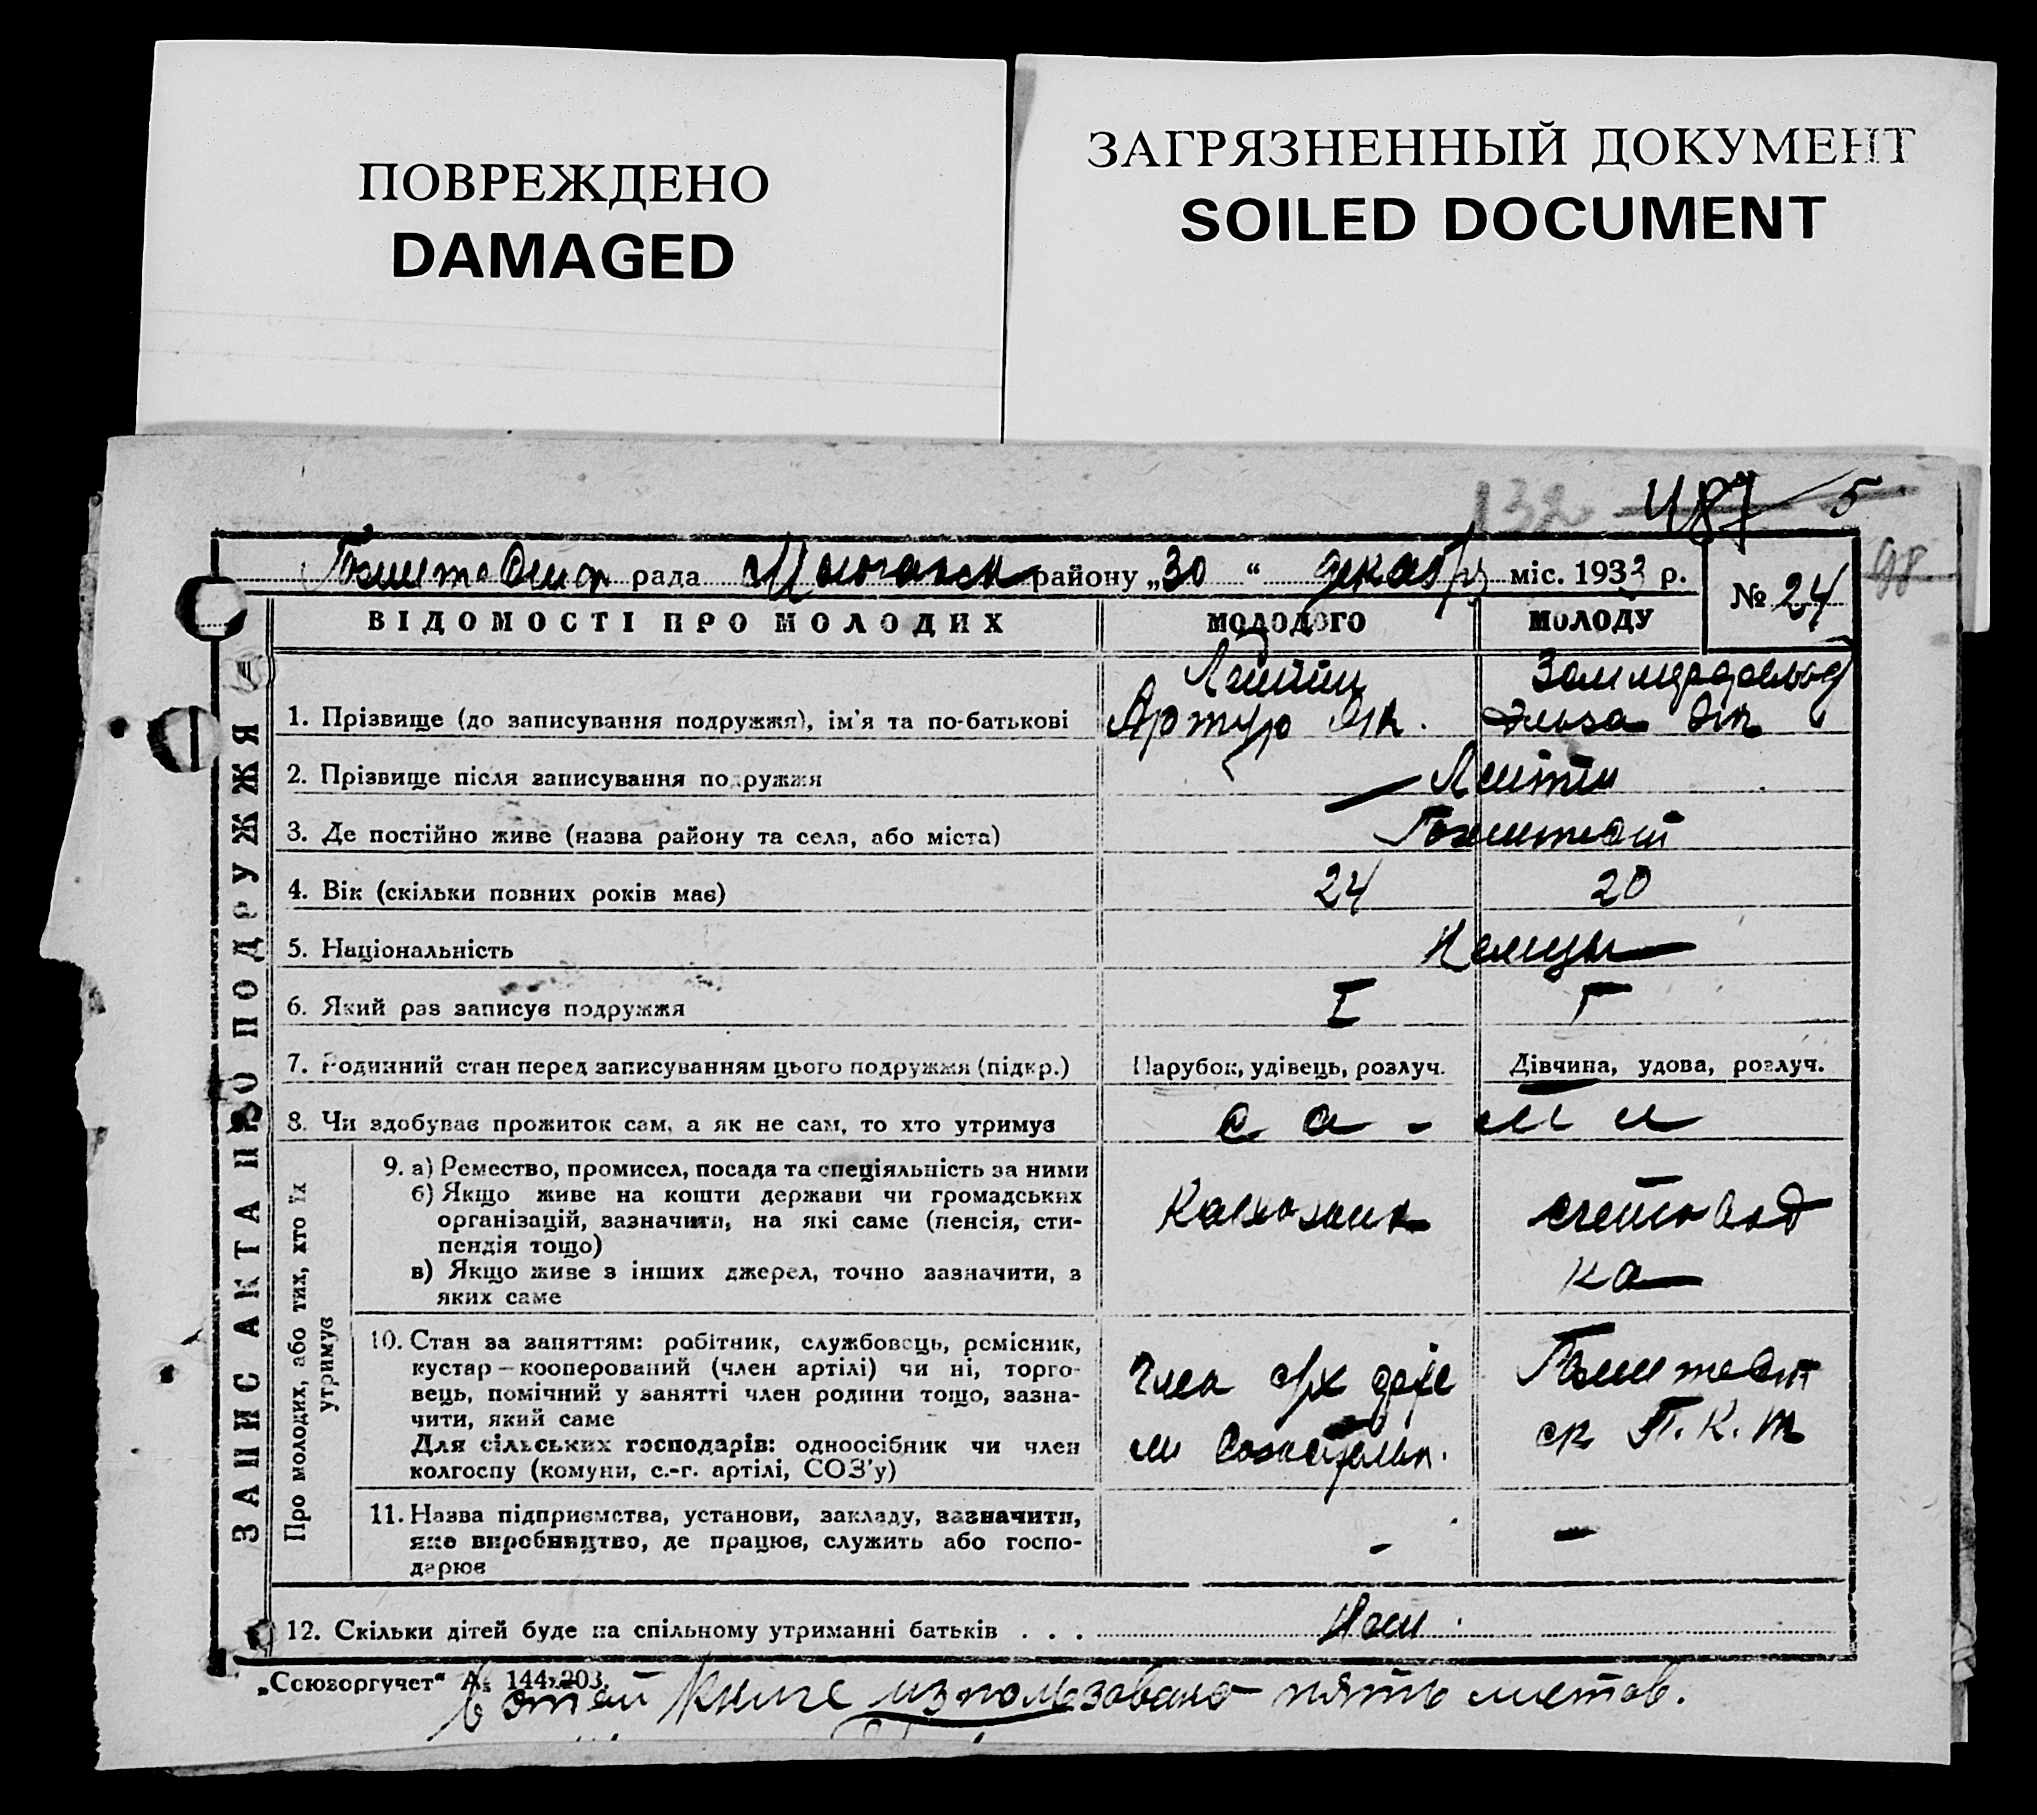 ПОВРЕЖДЕНО
DAMAGED
ЗАГРЯЗНЕННЫЙ ДОКУМЕНТ
SOILED DOCUMENT
132 487 5
98
рада району „30“ декабр міс. 1933 р.
№ 24
ЗАПИС АКТА ПРО ПОДРУЖЖЯ
ВІДОМОСТІ ПРО МОЛОДИХ МОЛОДОГО МОЛОДУ
1. Прізвище (до записування подружжя), ім'я та по-батькові Артур Эльза
2. Прізвище після записування подружжя
3. Де постійно живе (назва району та села, або міста)
4. Вік (скільки повних років має) 24 20
5. Національність Немцы
6. Який раз записує подружжя I I
7. Родинний стан перед записуванням цього подружжя (підкр.) Парубок, удівець, розлуч. Дівчина, удова, розлуч.
8. Чи здобуває прожиток сам, а як не сам, то хто утримує са - ми
Про молодих, або тих, хто їх утримує
9. а) Ремество, промисел, посада та спеціяльність за ними
б) Якщо живе на кошти держави чи громадських
організацій, вазначити, на які саме (пенсія, сти-
пендія тощо)
в) Якщо живе з інших джерел, точно зазначити, з
яких саме
Колхозник счетовод
ка
10. Стан за заняттям: робітник, службовець, ремісник,
кустар—кооперований (член артілі) чи ні, торго-
вець, помічний у занятті член родини тощо, зазна-
чити, який саме
Для сільських господарів: одноосібник чи член
колгоспу (комуни, с.-г. артілі, СОЗ'у)
11. Назва підприємства, установи, закладу, зазначити,
яке виробництво, де працює, служить або госпо-
дарює
- -
12. Скільки дітей буде на спільному утриманні батьків . . .
„Союзоргучет“ № 144-203.
В этой книге использовано пять листов.